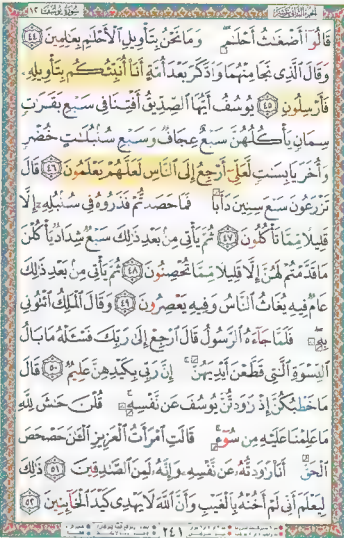 الجزء الثانى عشر سورة يوسف ١٢
قَالُوٓا۟ أَضْغَٰثُ أَحْلَٰمٍ وَمَا نَحْنُ بِتَأْوِيلِ ٱلْأَحْلَٰمِ بِعَٰلِمِينَ ﴿٤٤﴾
وَقَالَ ٱلَّذِى نَجَا مِنْهُمَا وَٱدَّكَرَ بَعْدَ أُمَّةٍ أَنَا۠ أُنَبِّئُكُم بِتَأْوِيلِهِۦ
فَأَرْسِلُونِ ﴿٤٥﴾ يُوسُفُ أَيُّهَا ٱلصِّدِّيقُ أَفْتِنَا فِى سَبْعِ بَقَرَٰتٍ
سِمَانٍ يَأْكُلُهُنَّ سَبْعٌ عِجَافٌ وَسَبْعِ سُنۢبُلَٰتٍ خُضْرٍ
وَأُخَرَ يَابِسَٰتٍ لَّعَلِّىٓ أَرْجِعُ إِلَى ٱلنَّاسِ لَعَلَّهُمْ يَعْلَمُونَ ﴿٤٦﴾ قَالَ
تَزْرَعُونَ سَبْعَ سِنِينَ دَأَبًا فَمَا حَصَدتُّمْ فَذَرُوهُ فِى سُنۢبُلِهِۦٓ إِلَّا
قَلِيلًا مِّمَّا تَأْكُلُونَ ﴿٤٧﴾ ثُمَّ يَأْتِى مِنۢ بَعْدِ ذَٰلِكَ سَبْعٌ شِدَادٌ يَأْكُلْنَ
مَا قَدَّمْتُمْ لَهُنَّ إِلَّا قَلِيلًا مِّمَّا تُحْصِنُونَ ﴿٤٨﴾ ثُمَّ يَأْتِى مِنۢ بَعْدِ ذَٰلِكَ
عَامٌ فِيهِ يُغَاثُ ٱلنَّاسُ وَفِيهِ يَعْصِرُونَ ﴿٤٩﴾ وَقَالَ ٱلْمَلِكُ ٱئْتُونِى
بِهِۦ فَلَمَّا جَآءَهُ ٱلرَّسُولُ قَالَ ٱرْجِعْ إِلَىٰ رَبِّكَ فَسْـَٔلْهُ مَا بَالُ
ٱلنِّسْوَةِ ٱلَّٰتِى قَطَّعْنَ أَيْدِيَهُنَّ إِنَّ رَبِّى بِكَيْدِهِنَّ عَلِيمٌ ﴿٥٠﴾ قَالَ
مَا خَطْبُكُنَّ إِذْ رَٰوَدتُّنَّ يُوسُفَ عَن نَّفْسِهِۦ قُلْنَ حَٰشَ لِلَّهِ
مَا عَلِمْنَا عَلَيْهِ مِن سُوٓءٍ قَالَتِ ٱمْرَأَتُ ٱلْعَزِيزِ ٱلْـَٰٔنَ حَصْحَصَ
ٱلْحَقُّ أَنَا۠ رَٰوَدتُّهُۥ عَن نَّفْسِهِۦ وَإِنَّهُۥ لَمِنَ ٱلصَّٰدِقِينَ ﴿٥١﴾ ذَٰلِكَ
لِيَعْلَمَ أَنِّى لَمْ أَخُنْهُ بِٱلْغَيْبِ وَأَنَّ ٱللَّهَ لَا يَهْدِى كَيْدَ ٱلْخَآئِنِينَ ﴿٥٢﴾
٢٤١